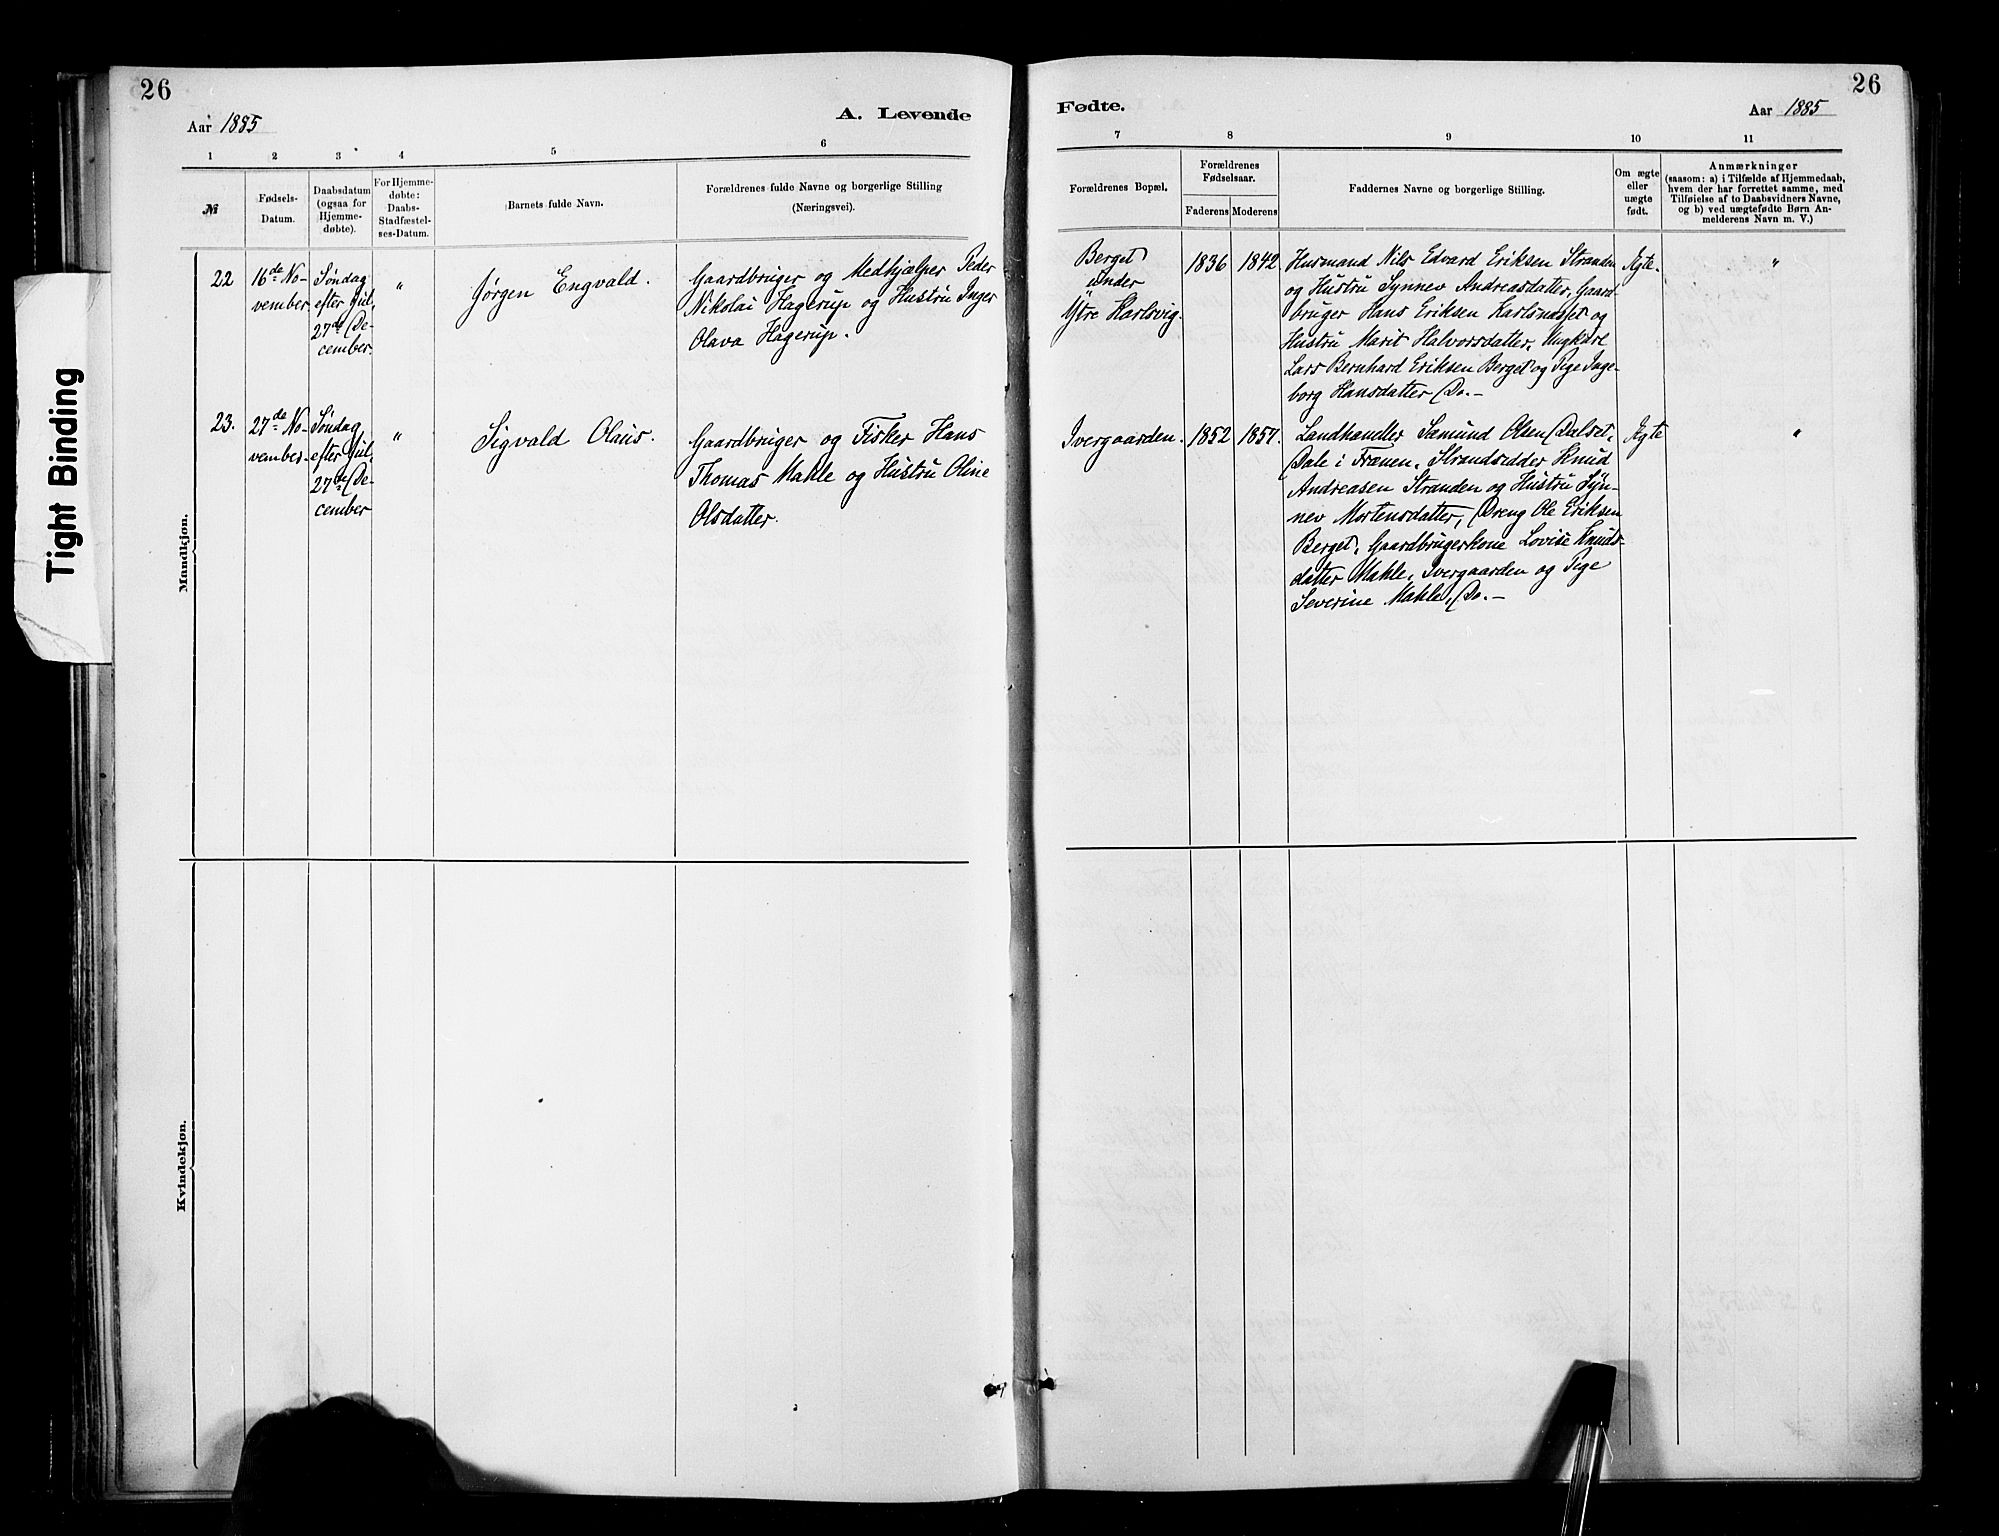 26
Aar 1885
A. Levende
1 2 3 4 5 6
№
Fødsels-
Datum.
Daabsdatum
(ogsaa for
Hjemme-
døbte).
For Hjemme-
døbte:
Daabs-
Stadfæstel-
ses-Datum.
Barnets fulde Navn.
Forældrenes fulde Navne og borgerlige Stilling
(Næringsvei).
Mandkjøn.
22
16de No-
vember.
Søndag
efter Jul,
27de De-
cember.
"
Jørgen Engvald.
Gaardbruger og Medhjælper Peder
Nikolai Hagerup og Hustru Inger
Olava Hagerup.
23.
27de No-
vember.
Søndag
efter Jul,
27de De-
cember
"
Sigvald Olaus.
Gaardbruger og Fisker Hans
Thomas Mahle og Hustru Oline
Olsdatter.
Kvindekjøn.
Tight Binding
26
Fødte.
Aar 1885
7 8 9 10 11
Forældrenes Bopæl.
Forældrenes
Fødselsaar.
Faderens Moderens
Faddernes Navne og borgerlige Stilling.
Om ægte
eller
uægte
født.
Anmærkninger
(saasom: a) i Tilfælde af Hjemmedaab,
hvem der har forrettet samme, med
Tilføielse af to Daabsvidners Navne,
og b) ved uægtefødte Børn An-
melderens Navn m. V.)
Berget
under
Ytre Harlsvig.
1836 1842
Husmand Nils Edvard Eriksen Stranden
og Hustru Synnev Andreasdatter, Gaard-
bruger Hans Eriksen Karlsnesset og
Hustru Marit Halvorsdatter, Ungkare
Lars Bernhard Eriksen Berget og Pige Inge-
borg Hansdatter Do. -
Ægte.
"
Ivergaarden.
1852 1857.
Landhandler Sæmund Olsen Dalset,
Dale i Frænen, Strandsidder Knud
Andreasen Stranden og Hustru Syn-
nev Mortensdatter, Dreng Ole Eriksen
Berget, Gaardbrugerkone Lovise Knuds-
datter Mahle, Ivergaarden og Pige
Severine Mahle, Do. -
Ægte
"